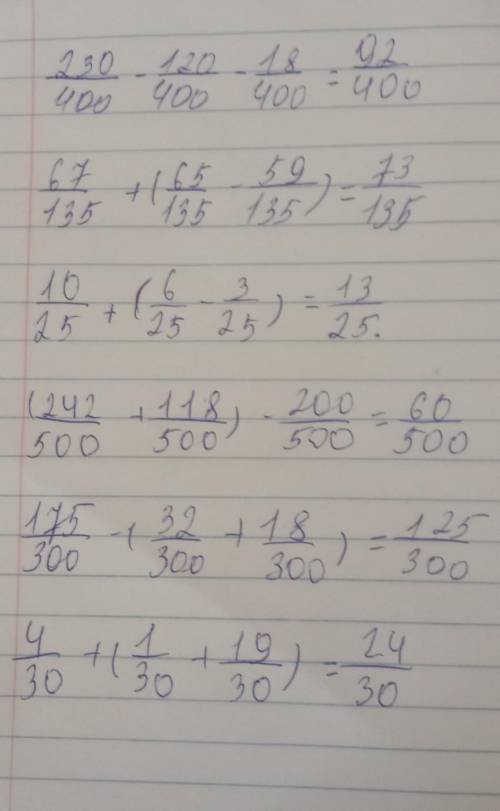 230/400 - 120/400 - 18/400 = 92/400
67/135 + (65/135 - 59/135) = 73/135
10/25 + (6/25 - 3/25) = 13/25.
(242/500 + 118/500) - 200/500 = 60/500
175/300 - (32/300 + 18/300) = 125/300
4/30 + (1/30 + 19/30) = 24/30